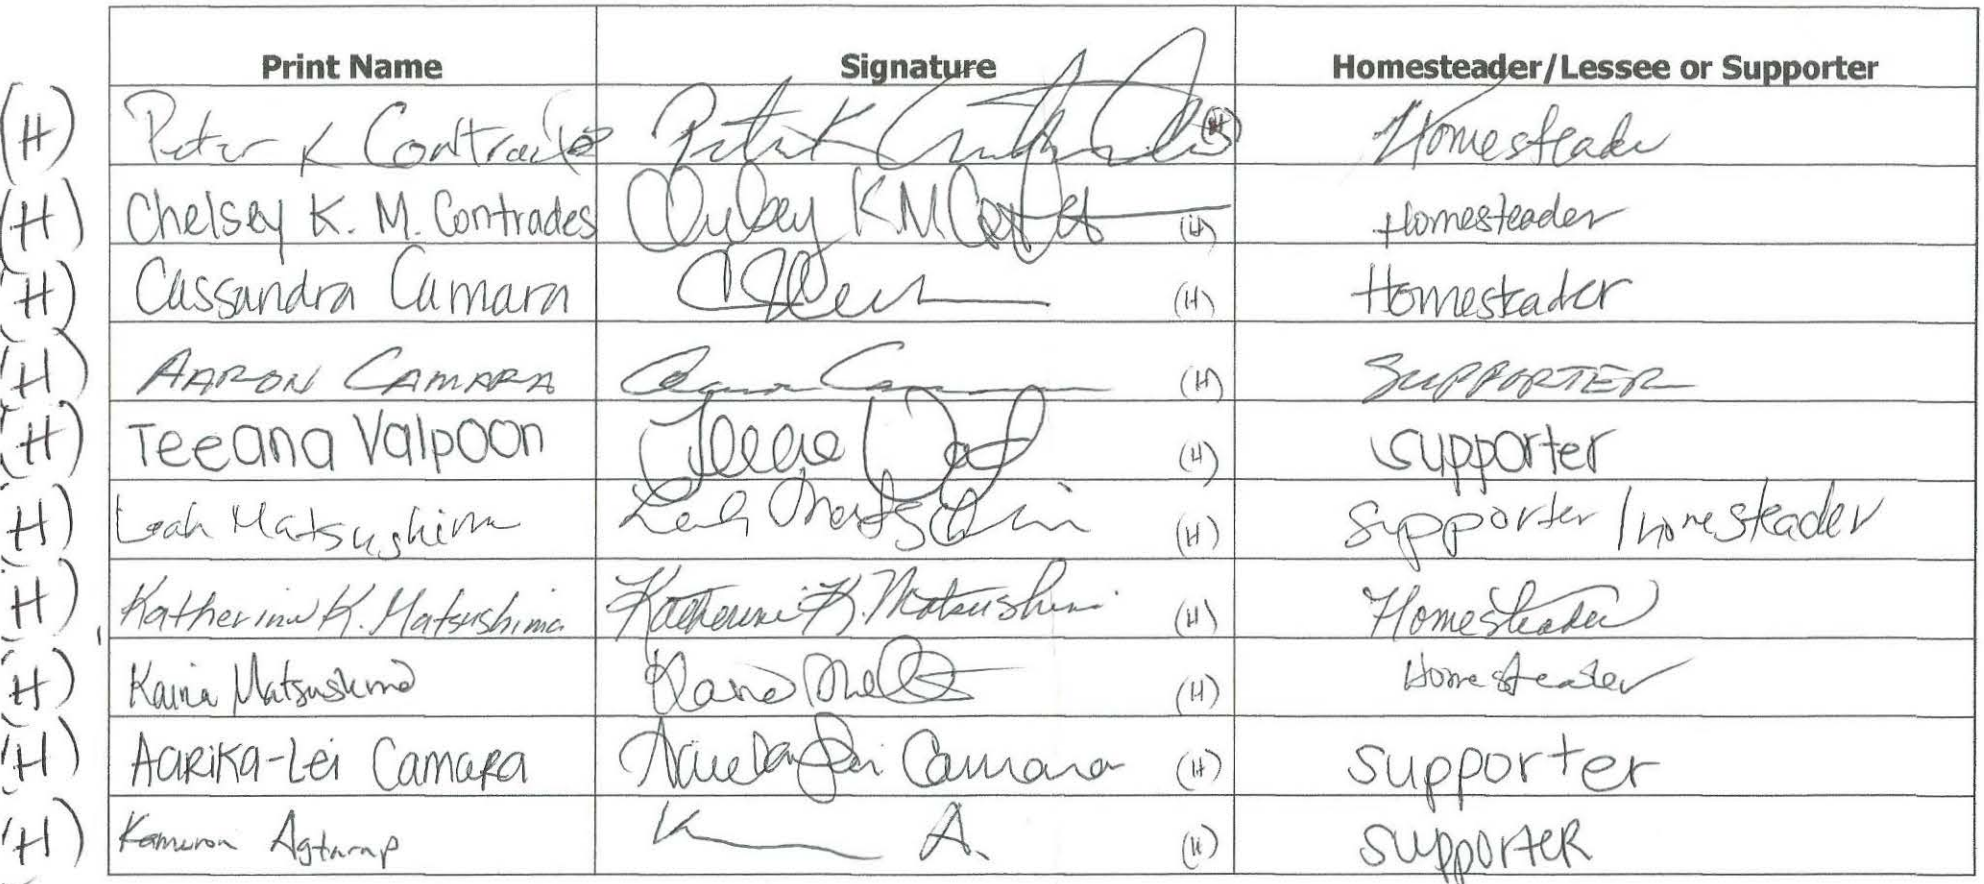 Print Name Signature Homesteader/Lessee or Supporter
(H) Peter K Contrades Peter K Contrades (H) Homesteader
(H) Chelsey K. M. Contrades Chelsey KM Contrades (H) Homesteader
(H) Cassandra Camara (H) Homesteader
(H) AARON CAMARA Aaron Camara (H) SUPPORTER
(H) Teeana Valpoon (H) supporter
(H) Leah Matsushima Leah Matsushima (H) Supporter / homesteader
(H) Katherine K. Matsushima Katherine K. Matsushima (H) Homesteader
(H) Kaina Matsushima (H) Homesteader
(H) AariKa-Lei Camara Aarika-Lei Camara (H) supporter
(H) Kameron Agtarap K A. (H) supporter